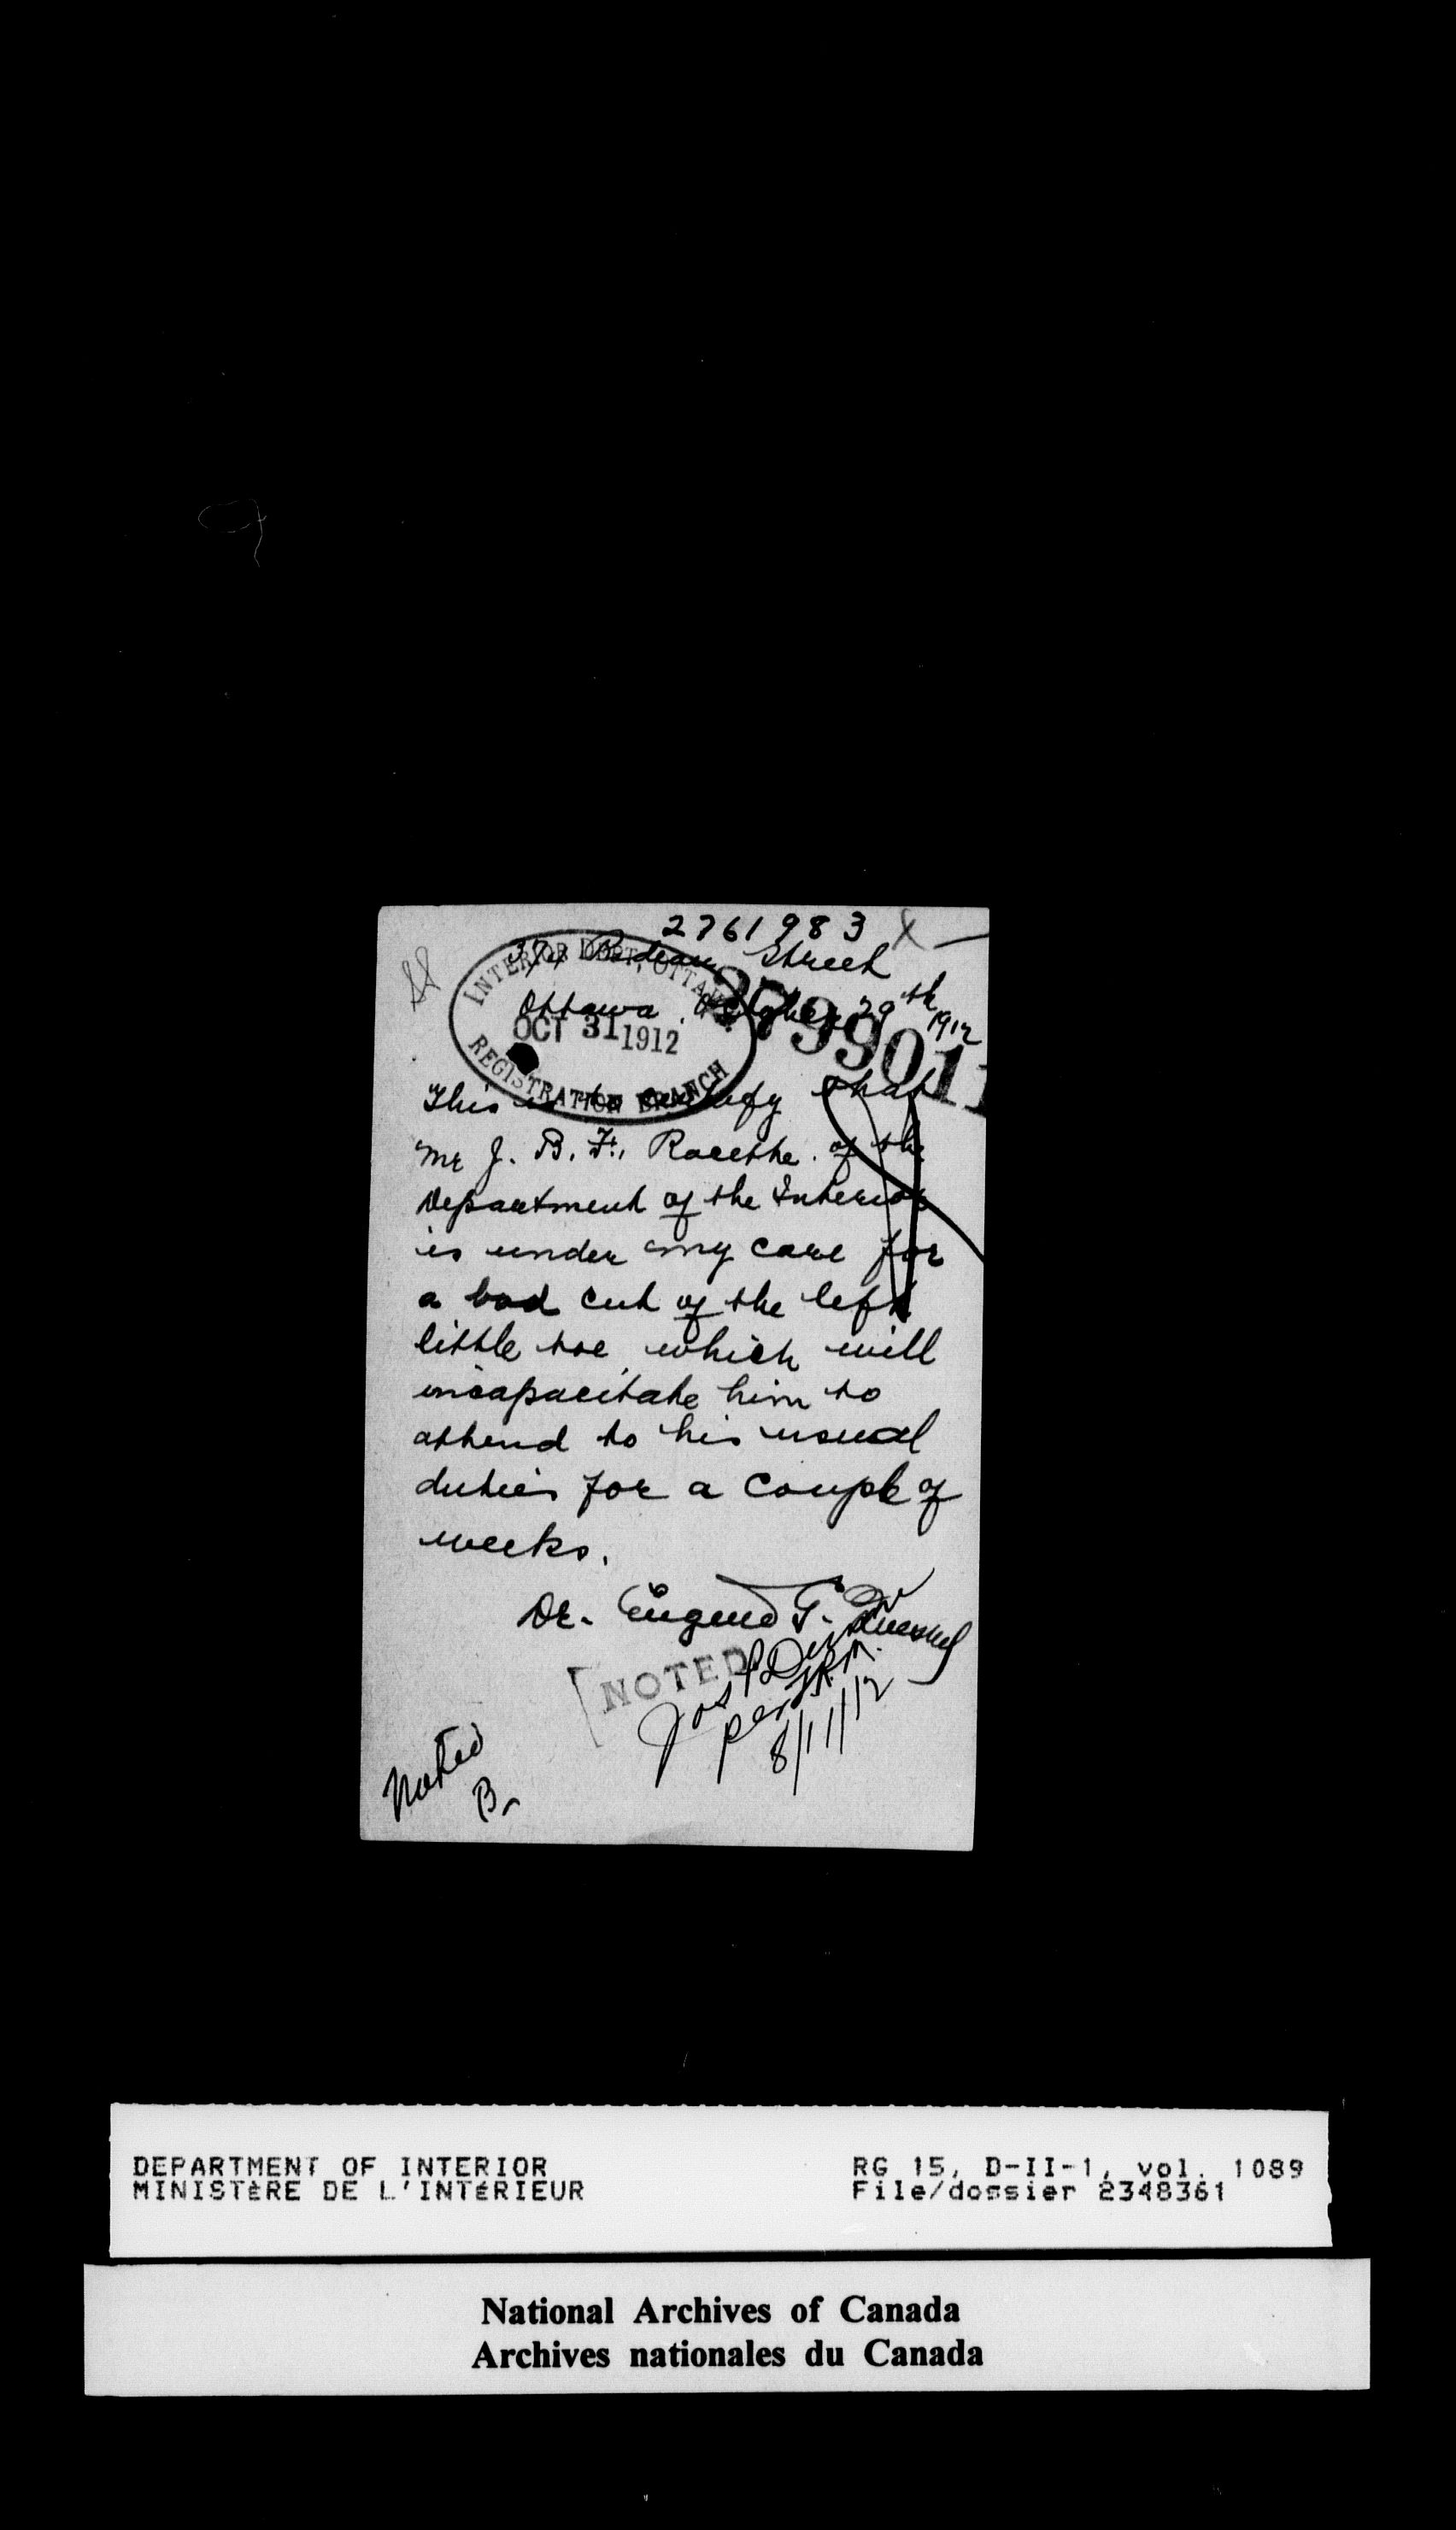 2761983 X
Rideau Street
Ottawa. October 29th 1912
INTERIOR DEPT, OTTAWA
OCT 31 1912
REGISTRATION BRANCH
2799011
This is to certify that
Mr J. B. F. Racette of the
Department of the Interior
is under my care for
a bad cut of the left
little toe, which will
incapacitate him to
attend to his usual
duties for a couple of
weeks.
Dr. Eugene G. Quesnel
NOTED
Jos P
per
8/11/12
Noted
B.
DEPARTMENT OF INTERIOR RG 15, D-II-1, vol. 1089
MINISTÈRE DE L'INTÉRIEUR File/dossier 2348361
National Archives of Canada
Archives nationales du Canada